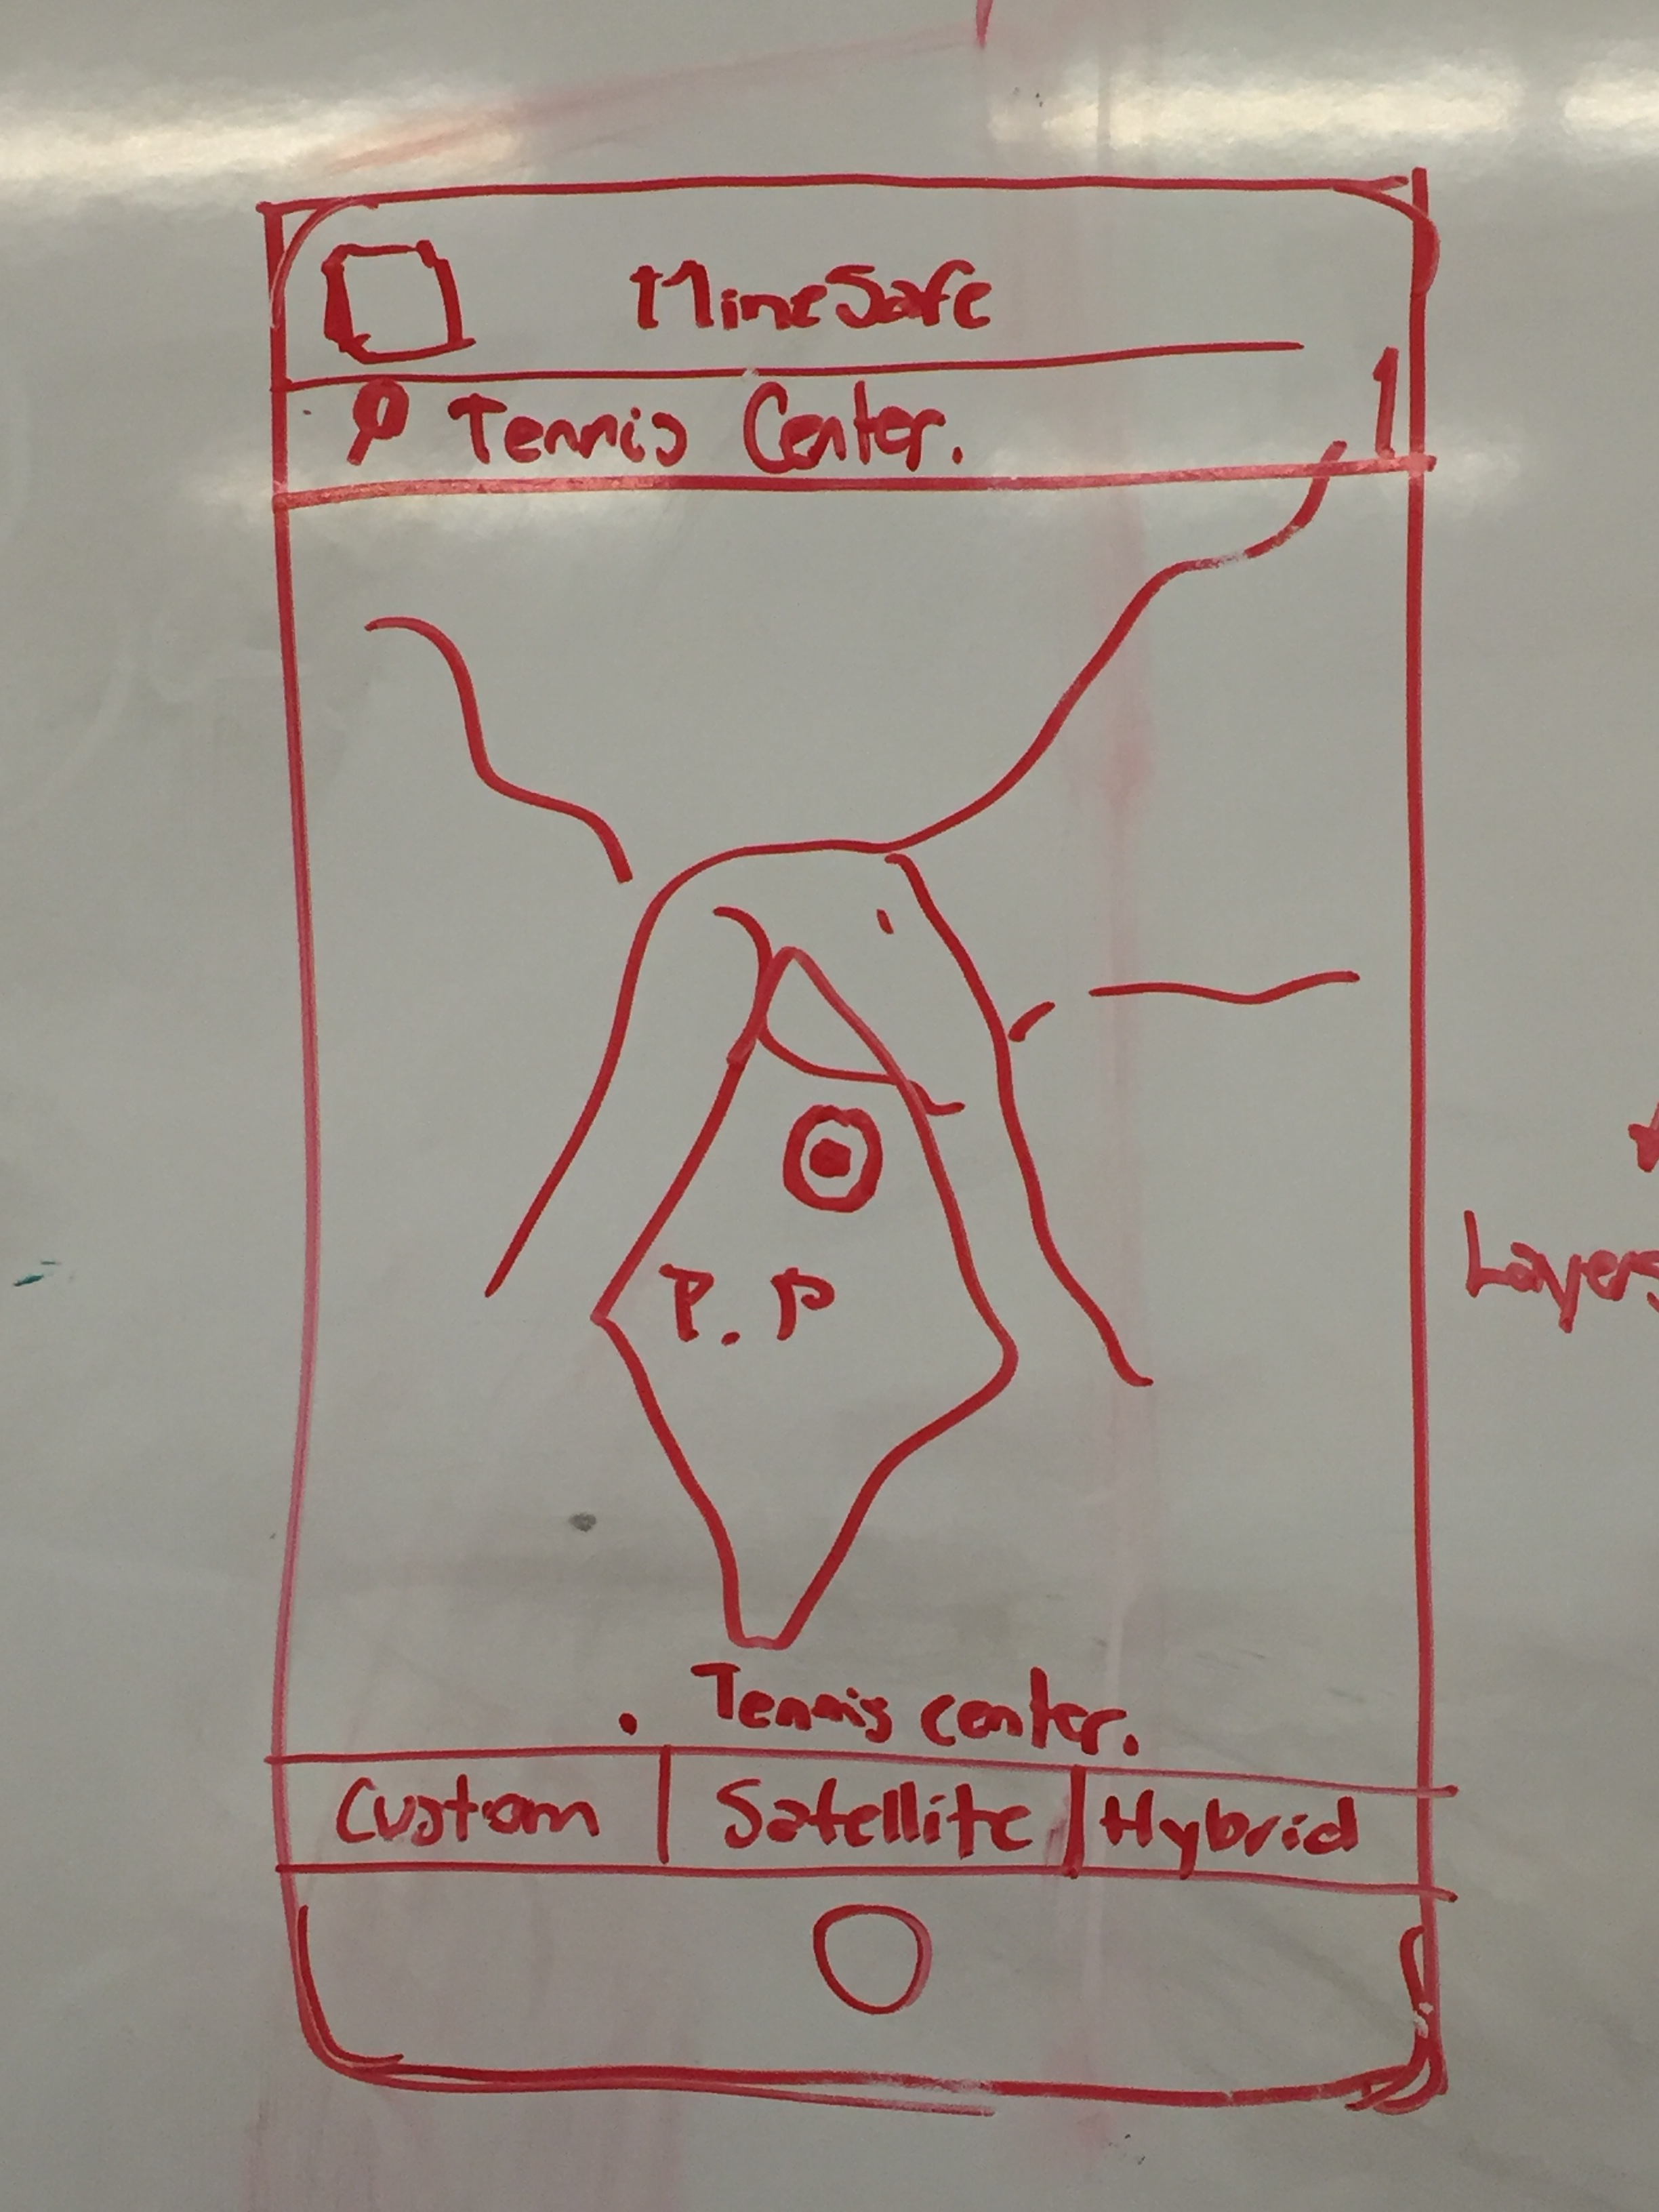 MineSafe
Tennis Center.
P. P
Layers
Tennis center.
Custom Satellite Hybrid